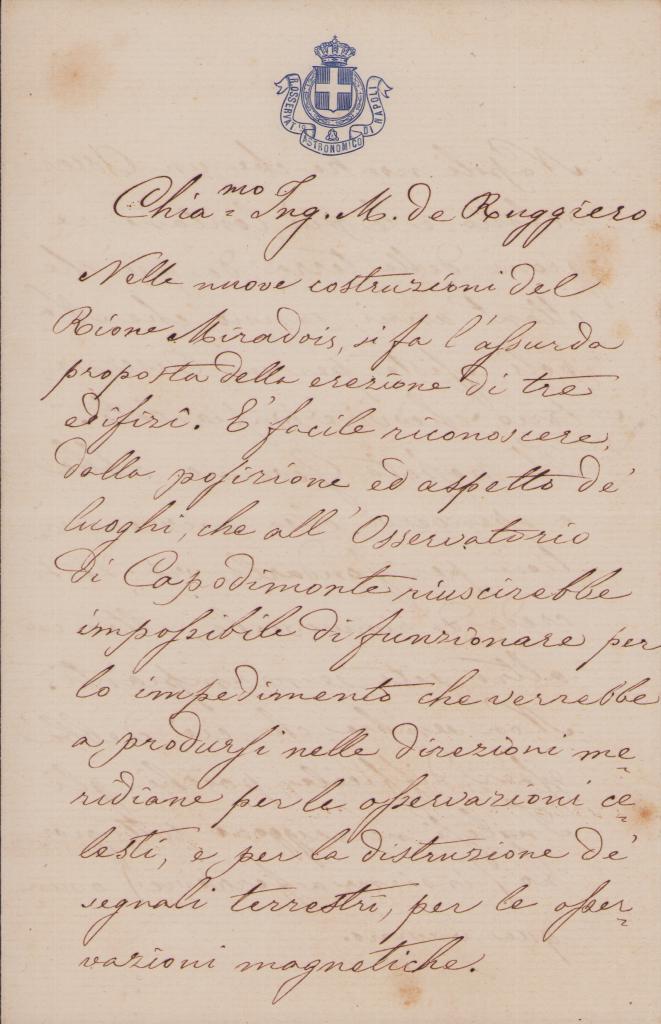 R. OSSERVAT.IO ASTRONOMICO DI NAPOLI
Chia.mo Ing. M. de Ruggiero
Nelle nuove costruzioni del
Rione Miradois, si fa l'assurda
proposta della erezione di tre
edifizî. E' facile riconoscere,
dalla posizione ed aspetto de'
luoghi, che all'Osservatorio
di Capodimonte riuscirebbe
impossibile di funzionare per
lo impedimento che verrebbe
a prodursi nelle direzioni me-
ridiane per le osservazioni ce-
lesti, e per la distruzione de'
segnali terrestri, per le osser-
vazioni magnetiche.